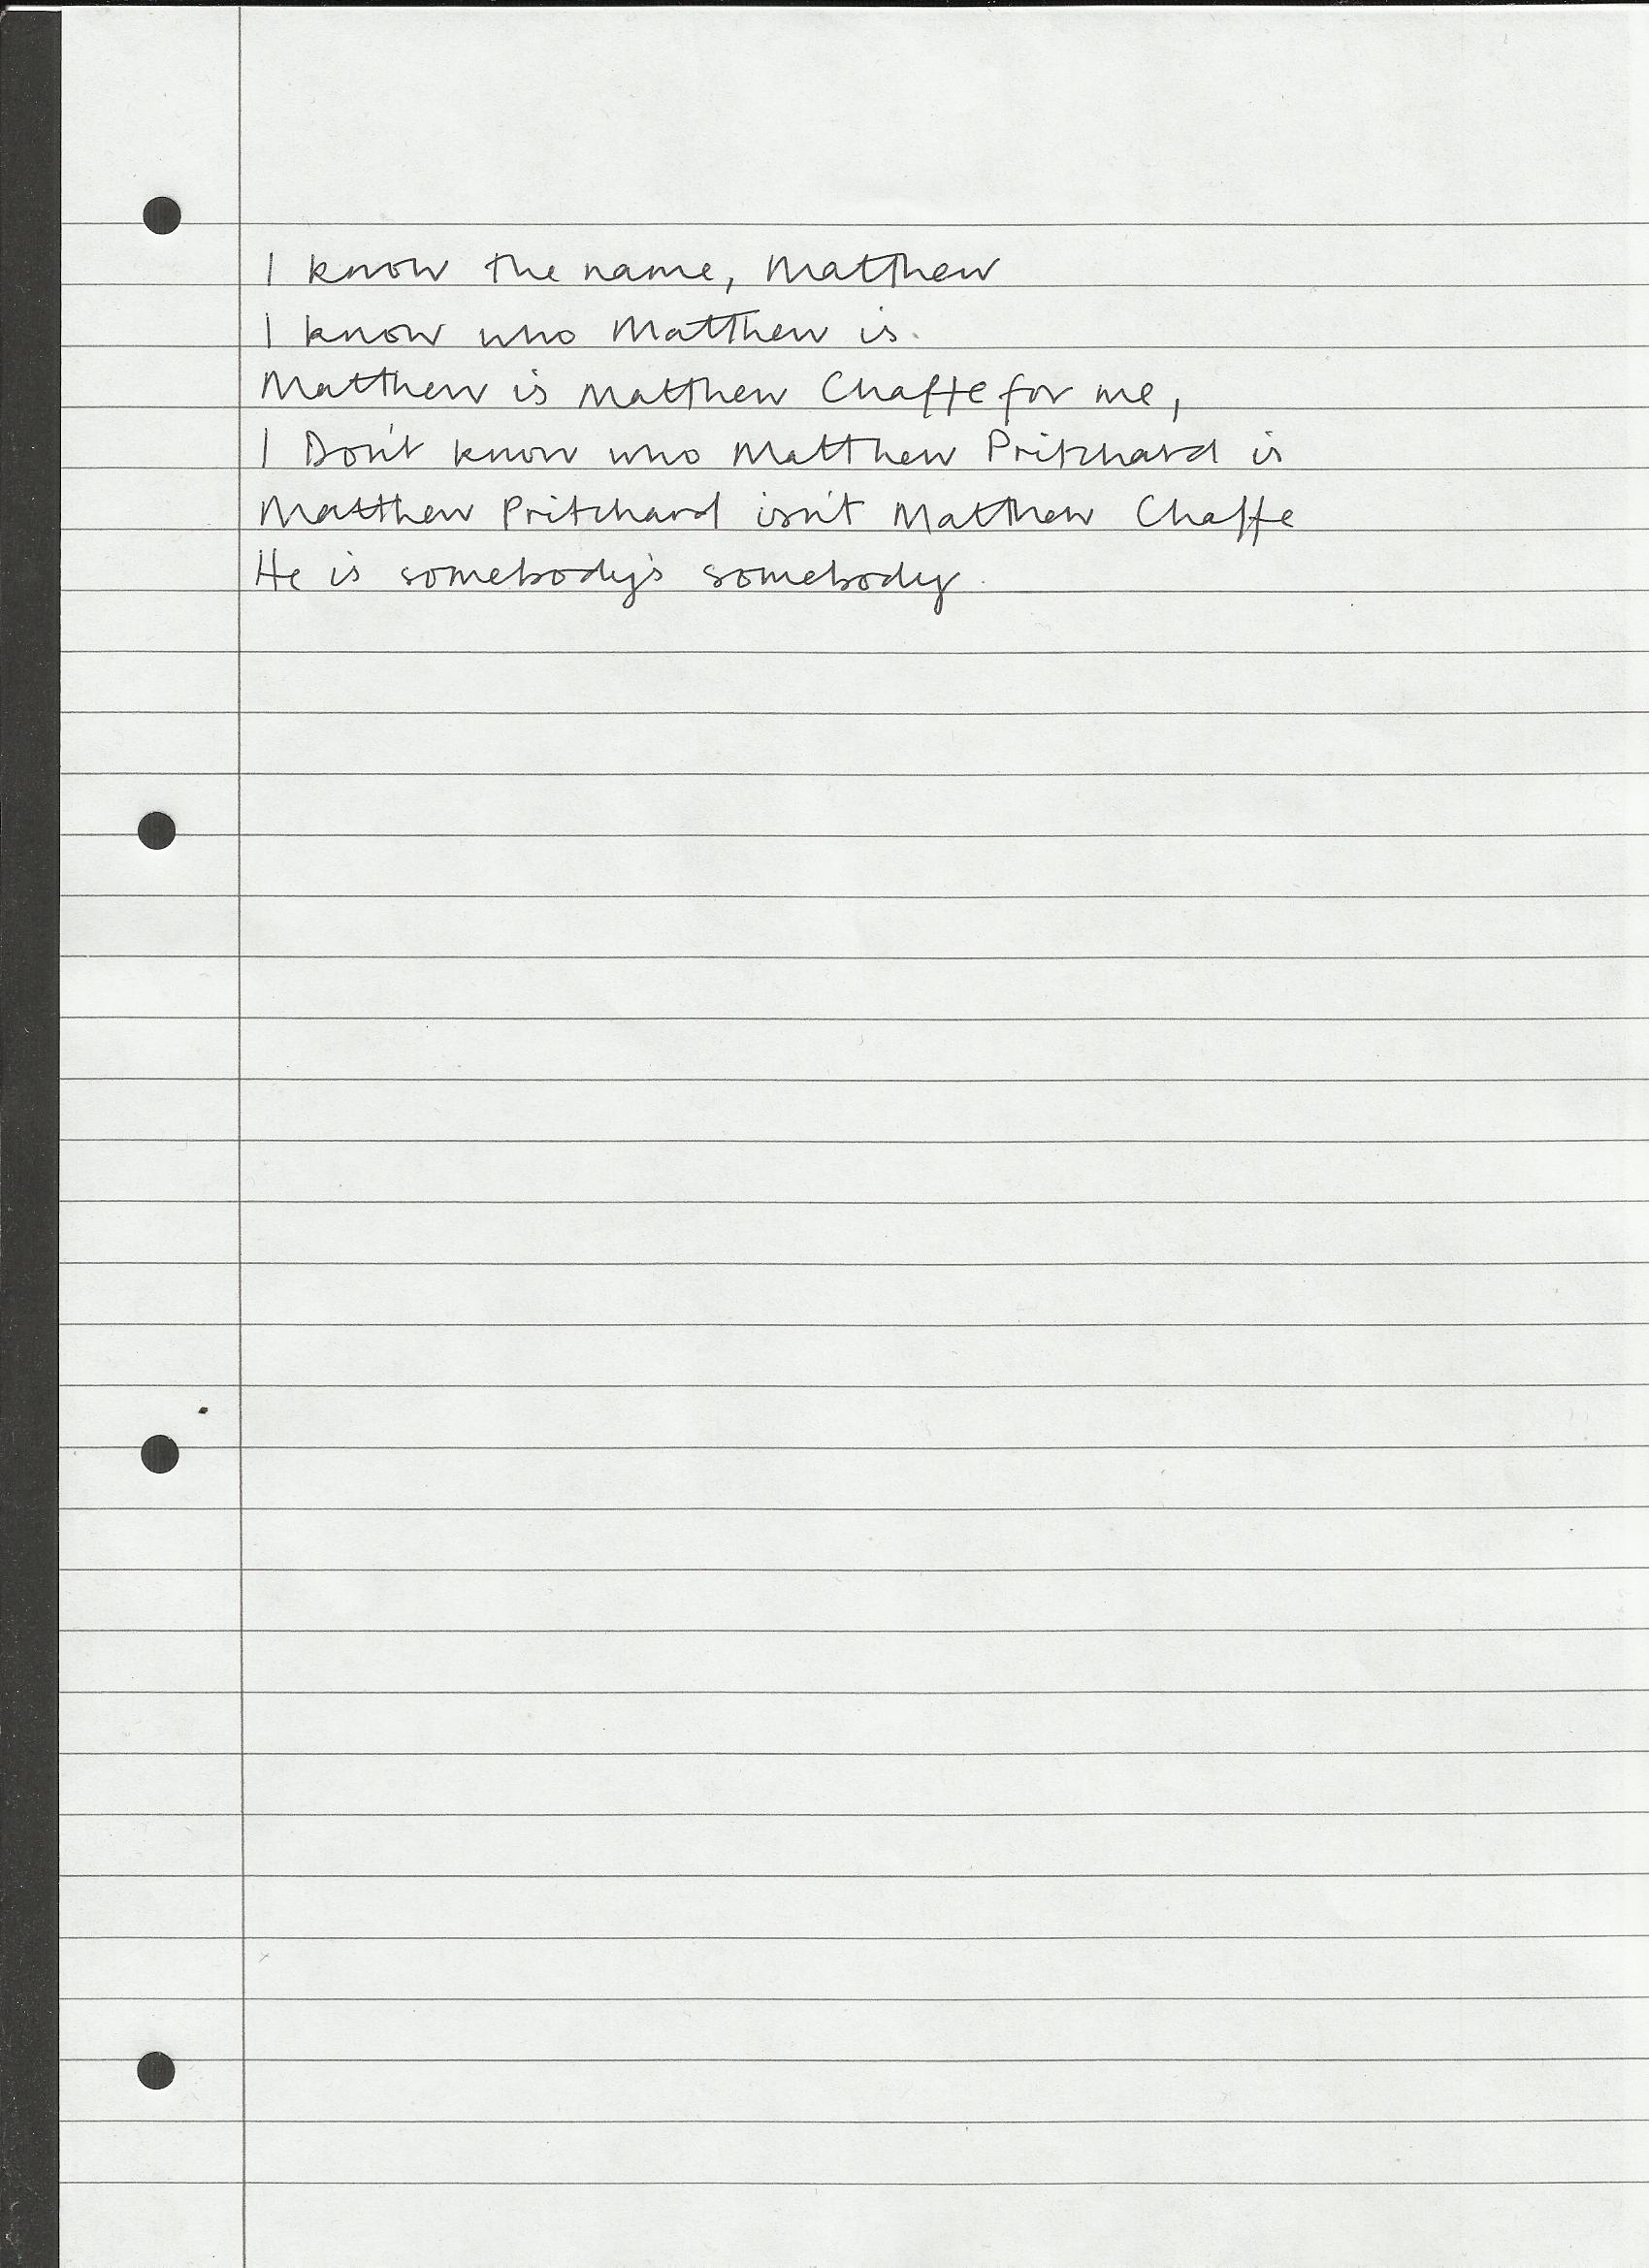 I know the name, Matthew
I know who Matthew is.
Matthew is Matthew Chaffe for me,
I Don't know who Matthew Pritchard is
Matthew Pritchard isn't Matthew Chaffe
He is somebody's somebody.